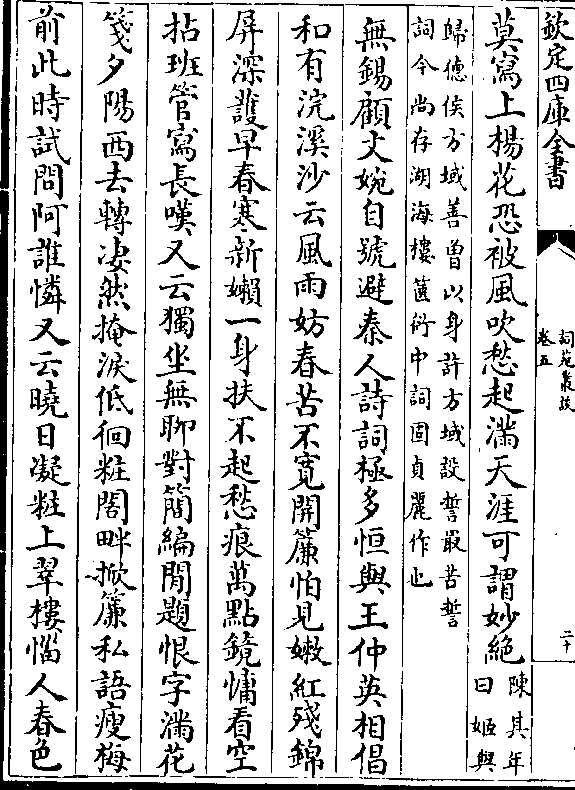 欽定四庫全書
詞苑叢談
卷五
二十
莫寫上楊花恐被風吹愁起滿天涯可謂妙絶陳其年
曰姬與
歸徳侯方域善曽以身許方域設誓最苦誓
詞今尚存湖海樓篋衍中詞固貞麗作也
無錫顧文婉自號避秦人詩詞極多恒與王仲英相倡
和有浣溪沙云風雨妨春苦不寛開簾怕見嫩紅殘錦
屏深護早春寒新嬾一身扶不起愁痕萬點鏡慵看空
拈班管寫長嘆又云獨坐無聊對簡編閒題恨字滿花
箋夕陽西去轉凄然掩淚低徊粧閣畔掀簾私語瘦梅
前此時試問阿誰憐又云曉日凝粧上翠樓惱人春色